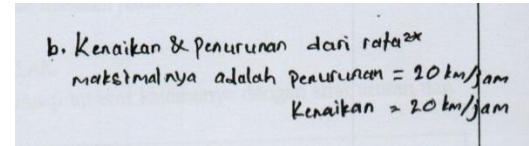 b. Kenaikan & Penurunan dari rata2x
maksimalnya adalah penurunan = 20 km/jam
Kenaikan = 20 km/jam